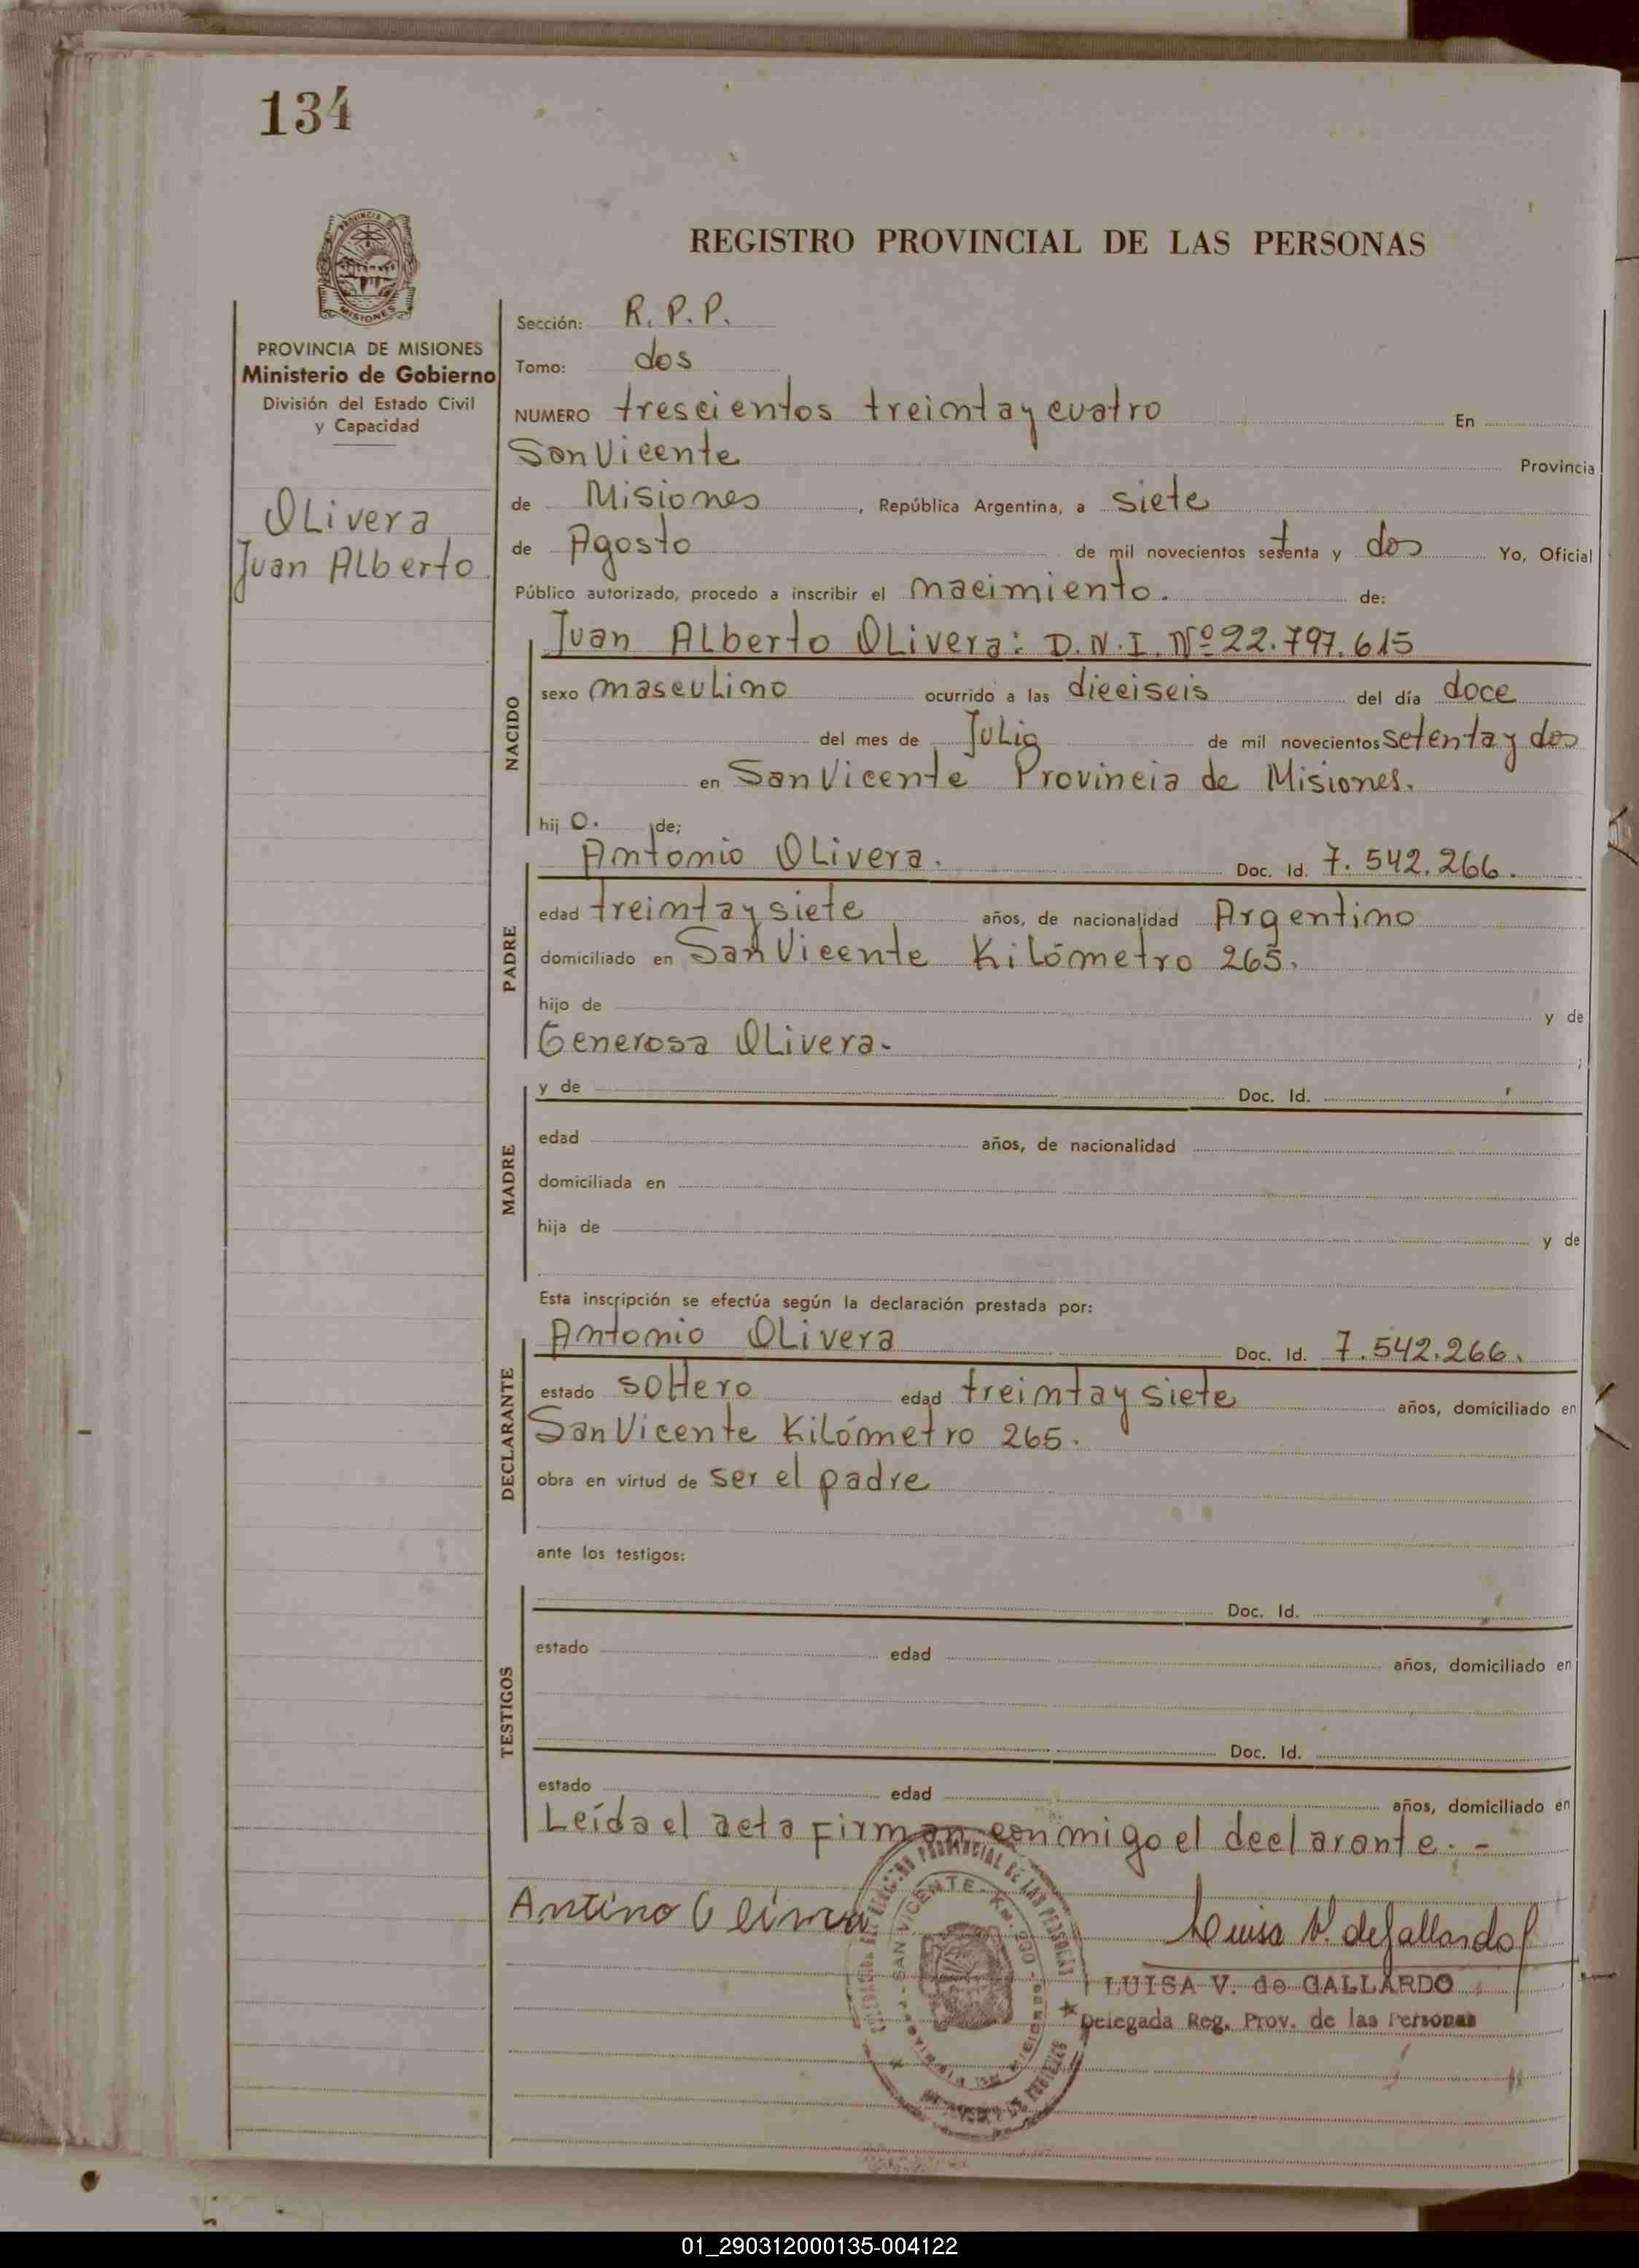 134
REGISTRO PROVINCIAL DE LAS PERSONAS
MISIONES
PROVINCIA DE MISIONES
Ministerio de Gobierno
División del Estado Civil
y Capacidad
Olivera
Juan Alberto
Sección: R. P. P.
Tomo: dos
NUMERO trescientos treinta y cuatro En
San Vicente Provincia
de Misiones, República Argentina, a siete
de Agosto de mil novecientos setenta y dos Yo, Oficial
Público autorizado, procedo a inscribir el nacimiento. de:
NACIDO
Juan Alberto Olivera: D. N. I. Nº 22.797.615
sexo masculino ocurrido a las dieciseis del día doce
del mes de Julio de mil novecientos setenta y dos
en San Vicente Provincia de Misiones.
hij o. de;
PADRE
Antonio Olivera. Doc. Id. 7.542.266.
edad treinta y siete años, de nacionalidad Argentino
domiciliado en San Vicente Kilómetro 265.
hijo de y de
Generosa Olivera.- ;
MADRE
y de Doc. Id.
edad años, de nacionalidad
domiciliada en
hija de y de
Esta inscripción se efectúa según la declaración prestada por:
DECLARANTE
Antonio Olivera Doc. Id. 7.542.266.
estado soltero edad treinta y siete años, domiciliado en
San Vicente Kilómetro 265.
obra en virtud de ser el padre
ante los testigos:
TESTIGOS
Doc. Id.
estado edad años, domiciliado en
Doc. Id.
estado edad años, domiciliado en
Leída el acta firman conmigo el declarante. -
Luisa V. de Gallardo
LUISA V. de GALLARDO
Delegada Reg. Prov. de las Personas
PROVINCIAL DE LAS PERSONAS
SAN VICENTE - KM. 230
01_290312000135-004122